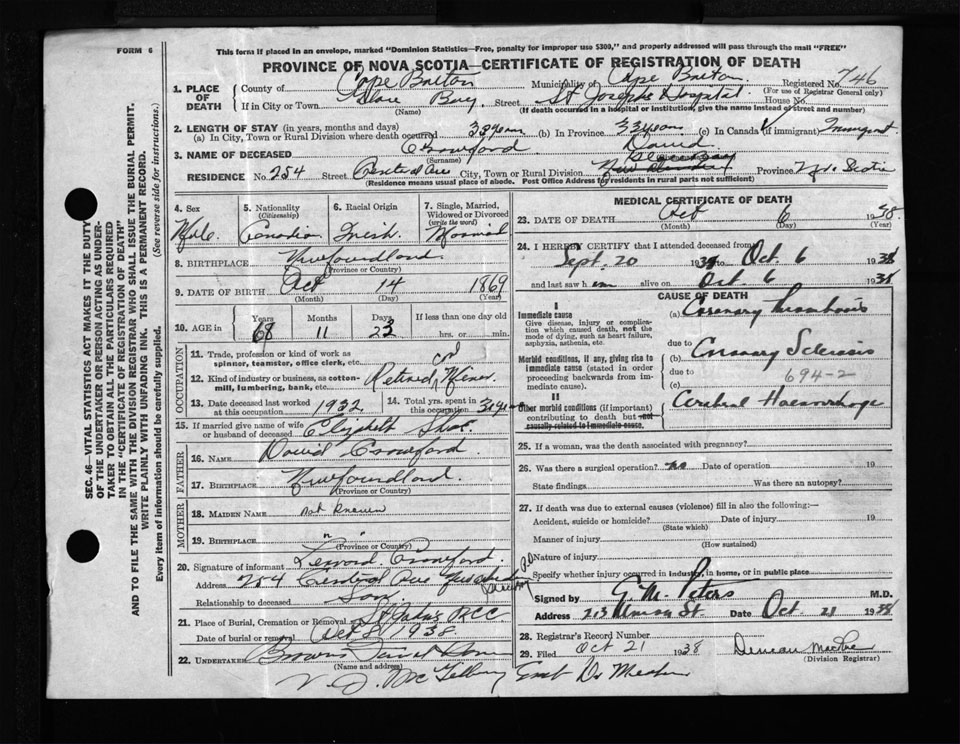 FORM 6
This form if placed in an envelope, marked "Dominion Statistics—Free, penalty for improper use $300," and properly addressed will pass through the mail "FREE"
PROVINCE OF NOVA SCOTIA—CERTIFICATE OF REGISTRATION OF DEATH
1. PLACE OF DEATH
County of Cape Breton Municipality of Cape Breton Registered No. 746
(For use of Registrar General only)
If in City or Town Glace Bay Street St Josephs Hospital House No.
(Name) (If death occurred in a hospital or institution, give the name instead of street and number)
2. LENGTH OF STAY (in years, months and days)
(a) In City, Town or Rural Division where death occurred 33 years (b) In Province 33 years (c) In Canada (if immigrant) Immigrant
3. NAME OF DECEASED Crawford David
(Surname)
RESIDENCE No. 254 Street Central Ave City, Town or Rural Division Province Nova Scotia
(Residence means usual place of abode. Post Office Address for residents in rural parts not sufficient)
4. Sex Male
5. Nationality (Citizenship) Canadian
6. Racial Origin Irish
7. Single, Married, Widowed or Divorced (write the word) Married
8. BIRTHPLACE Newfoundland
(Province or Country)
9. DATE OF BIRTH Oct 14 1869
(Month) (Day) (Year)
10. AGE in Years Months Days If less than one day
68 11 23 hrs. or min.
OCCUPATION
11. Trade, profession or kind of work as spinner, teamster, office clerk, etc.
12. Kind of industry or business, as cotton-mill, lumbering, bank, etc. Retired Coal Miner
13. Date deceased last worked at this occupation 1932
14. Total yrs. spent in this occupation
15. If married give name of wife or husband of deceased Elizabeth
FATHER
16. NAME David Crawford
17. BIRTHPLACE Newfoundland
(Province or Country)
MOTHER
18. MAIDEN NAME not known
19. BIRTHPLACE " "
(Province or Country)
20. Signature of informant Leonard Crawford
Address 254 Central Ave
Relationship to deceased Son
21. Place of Burial, Cremation or Removal St Johns
Date of burial or removal Oct 8 1938
22. UNDERTAKER
(Name and address)
MEDICAL CERTIFICATE OF DEATH
23. DATE OF DEATH Oct 6 1938
(Month) (Day) (Year)
24. I HEREBY CERTIFY that I attended deceased from
Sept. 20 1938 to Oct. 6 1938
and last saw him alive on Oct. 6 1938
CAUSE OF DEATH
I
Immediate cause
Give disease, injury or complication which caused death, not the mode of dying, such as heart failure, asphyxia, asthenia, etc.
(a) Coronary Thrombosis
due to
Morbid conditions, if any, giving rise to immediate cause (stated in order proceeding backwards from immediate cause).
(b) Coronary Sclerosis
due to
694-2
(c)
II
Other morbid conditions (if important) contributing to death but not causally related to immediate cause.
Cerebral Haemorrhage
25. If a woman, was the death associated with pregnancy?
26. Was there a surgical operation? no Date of operation 19
State findings Was there an autopsy?
27. If death was due to external causes (violence) fill in also the following:—
Accident, suicide or homicide? Date of injury 19
(State which)
Manner of injury
(How sustained)
Nature of injury
Specify whether injury occurred in industry, in home, or in public place
Signed by G. M. Peters M.D.
Address 213 St. Date Oct 21 1938
28. Registrar's Record Number
29. Filed Oct 21 1938 Duncan
(Division Registrar)
SEC. 46—VITAL STATISTICS ACT MAKES IT THE DUTY
OF THE UNDERTAKER OR PERSON ACTING AS UNDER-
TAKER TO OBTAIN ALL THE PARTICULARS REQUIRED
IN THE "CERTIFICATE OF REGISTRATION OF DEATH"
AND TO FILE THE SAME WITH THE DIVISION REGISTRAR WHO SHALL ISSUE THE BURIAL PERMIT.
WRITE PLAINLY WITH UNFADING INK. THIS IS A PERMANENT RECORD.
Every item of information should be carefully supplied.
(See reverse side for instructions.)